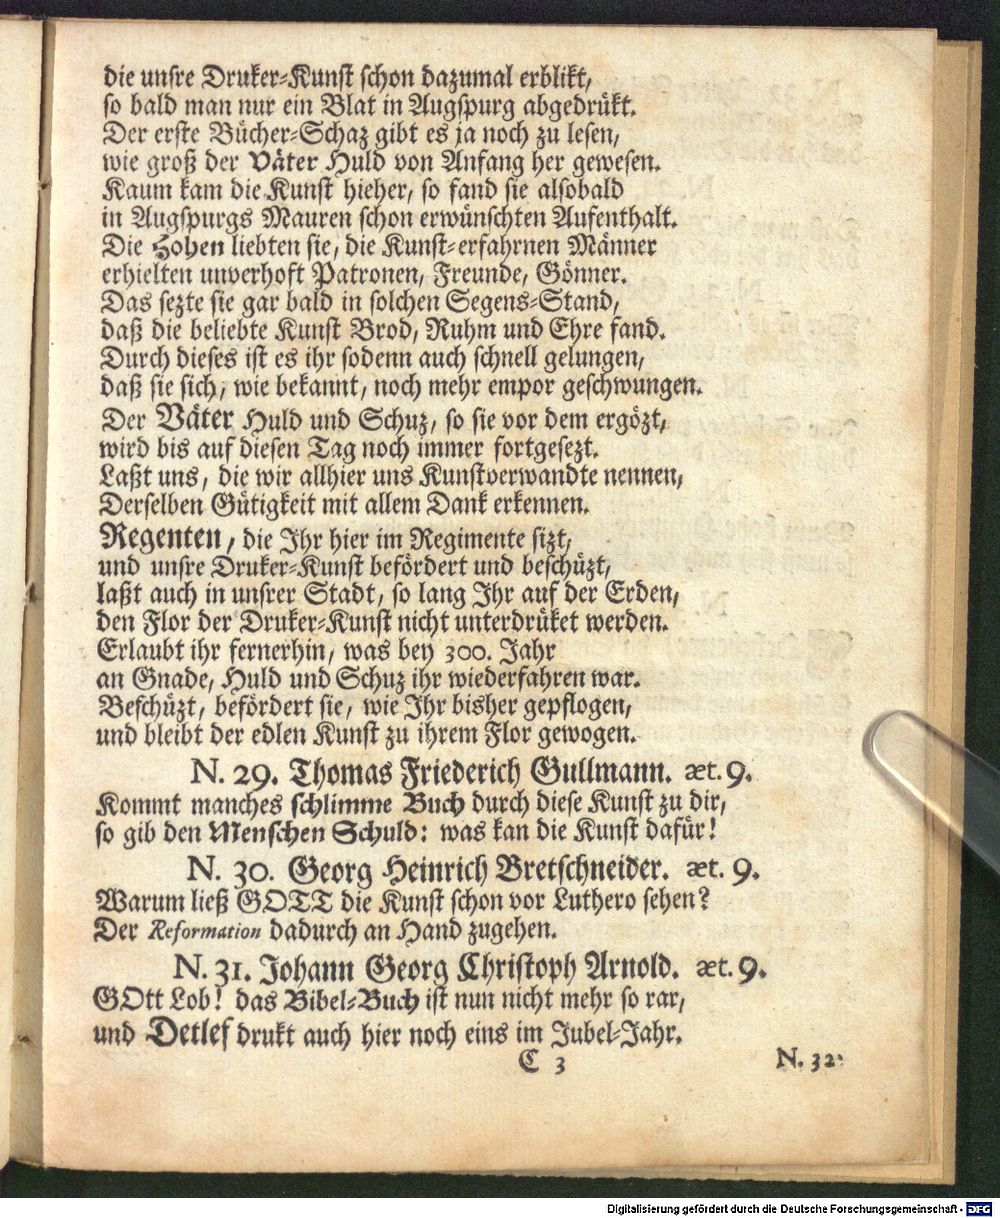 die unsre Druker-Kunst schon dazumal erblikt,
so bald man nur ein Blat in Augspurg abgedrükt.
Der erste Bücher-Schaz gibt es ja noch zu lesen,
wie groß der Väter Huld von Anfang her gewesen.
Kaum kam die Kunst hieher, so fand sie alsobald
in Augspurgs Mauren schon erwünschten Aufenthalt.
Die Hohen liebten sie, die Kunst-erfahrnen Männer
erhielten unverhoft Patronen, Freunde, Gönner.
Das sezte sie gar bald in solchen Segens-Stand,
daß die beliebte Kunst Brod, Ruhm und Ehre fand.
Durch dieses ist es ihr sodenn auch schnell gelungen,
daß sie sich, wie bekannt, noch mehr empor geschwungen.
Der Väter Huld und Schuz, so sie vor dem ergözt,
wird bis auf diesen Tag noch immer fortgesezt.
Laßt uns, die wir allhier uns Kunstverwandte nennen,
Derselben Gütigkeit mit allem Dank erkennen.
Regenten, die Ihr hier im Regimente sizt,
und unsre Druker-Kunst befördert und beschüzt,
laßt auch in unsrer Stadt, so lang Ihr auf der Erden,
den Flor der Druker-Kunst nicht unterdrüket werden.
Erlaubt ihr fernerhin, was bey 300. Jahr
an Gnade, Huld und Schuz ihr wiederfahren war.
Beschüzt, befördert sie, wie Ihr bisher gepflogen,
und bleibt der edlen Kunst zu ihrem Flor gewogen.
N. 29. Thomas Friederich Gullmann. æt. 9.
Kommt manches schlimme Buch durch diese Kunst zu dir,
so gib den Menschen Schuld: was kan die Kunst dafür!
N. 30. Georg Heinrich Bretschneider. æt. 9.
Warum ließ GOTT die Kunst schon vor Luthero sehen?
Der Reformation dadurch an Hand zugehen.
N. 31. Johann Georg Christoph Arnold. æt. 9.
GOtt Lob! das Bibel-Buch ist nun nicht mehr so rar,
und Detlef drukt auch hier noch eins im Jubel-Jahr.
C 3 N. 32.
Digitalisierung gefördert durch die Deutsche Forschungsgemeinschaft - DFG